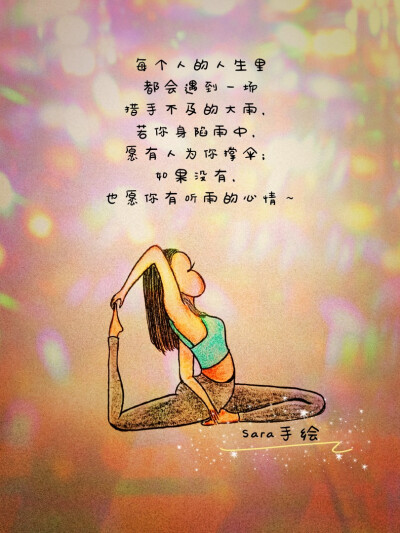 每个人的人生里
都会遇到一场
措手不及的大雨，
若你身陷雨中，
愿有人为你撑伞；
如果没有，
也愿你有听雨的心情~
sara手绘